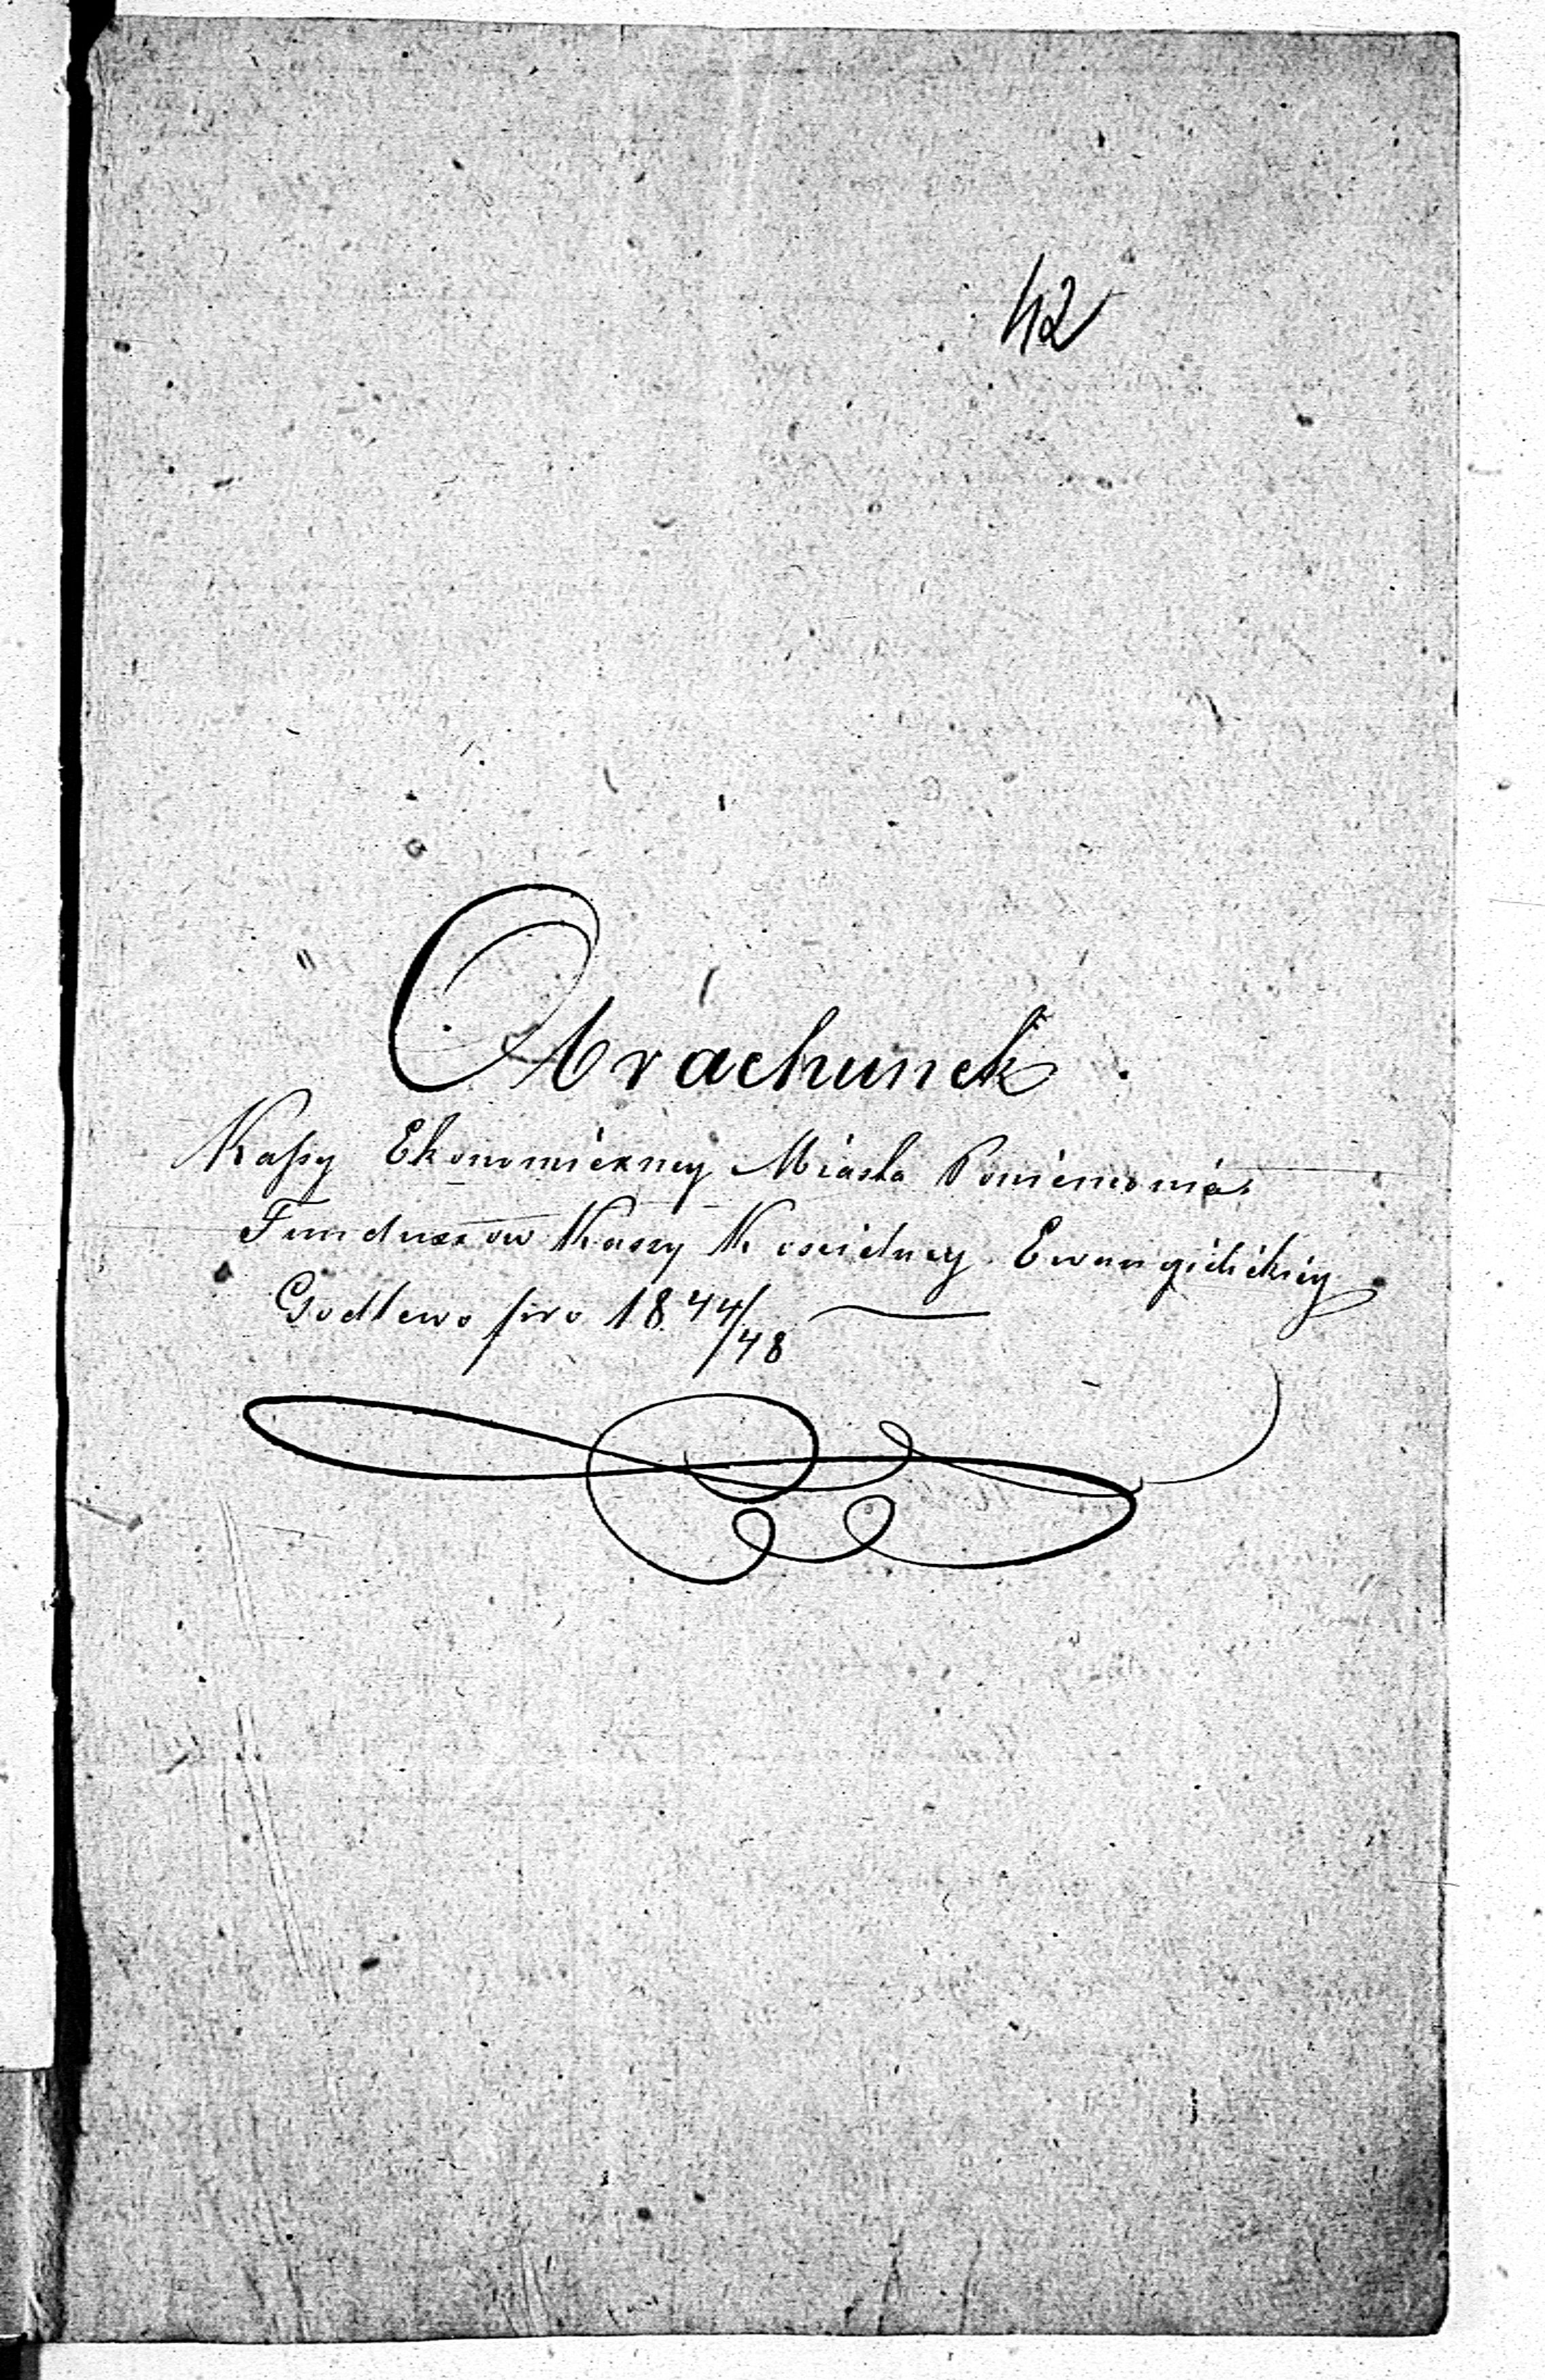 42
Obrachunek
Kassy Ekonomiczney Miasta Poniemonia
Funduszow Kassy Koscielney Ewangielickiey
Godlewo pro 1844/48